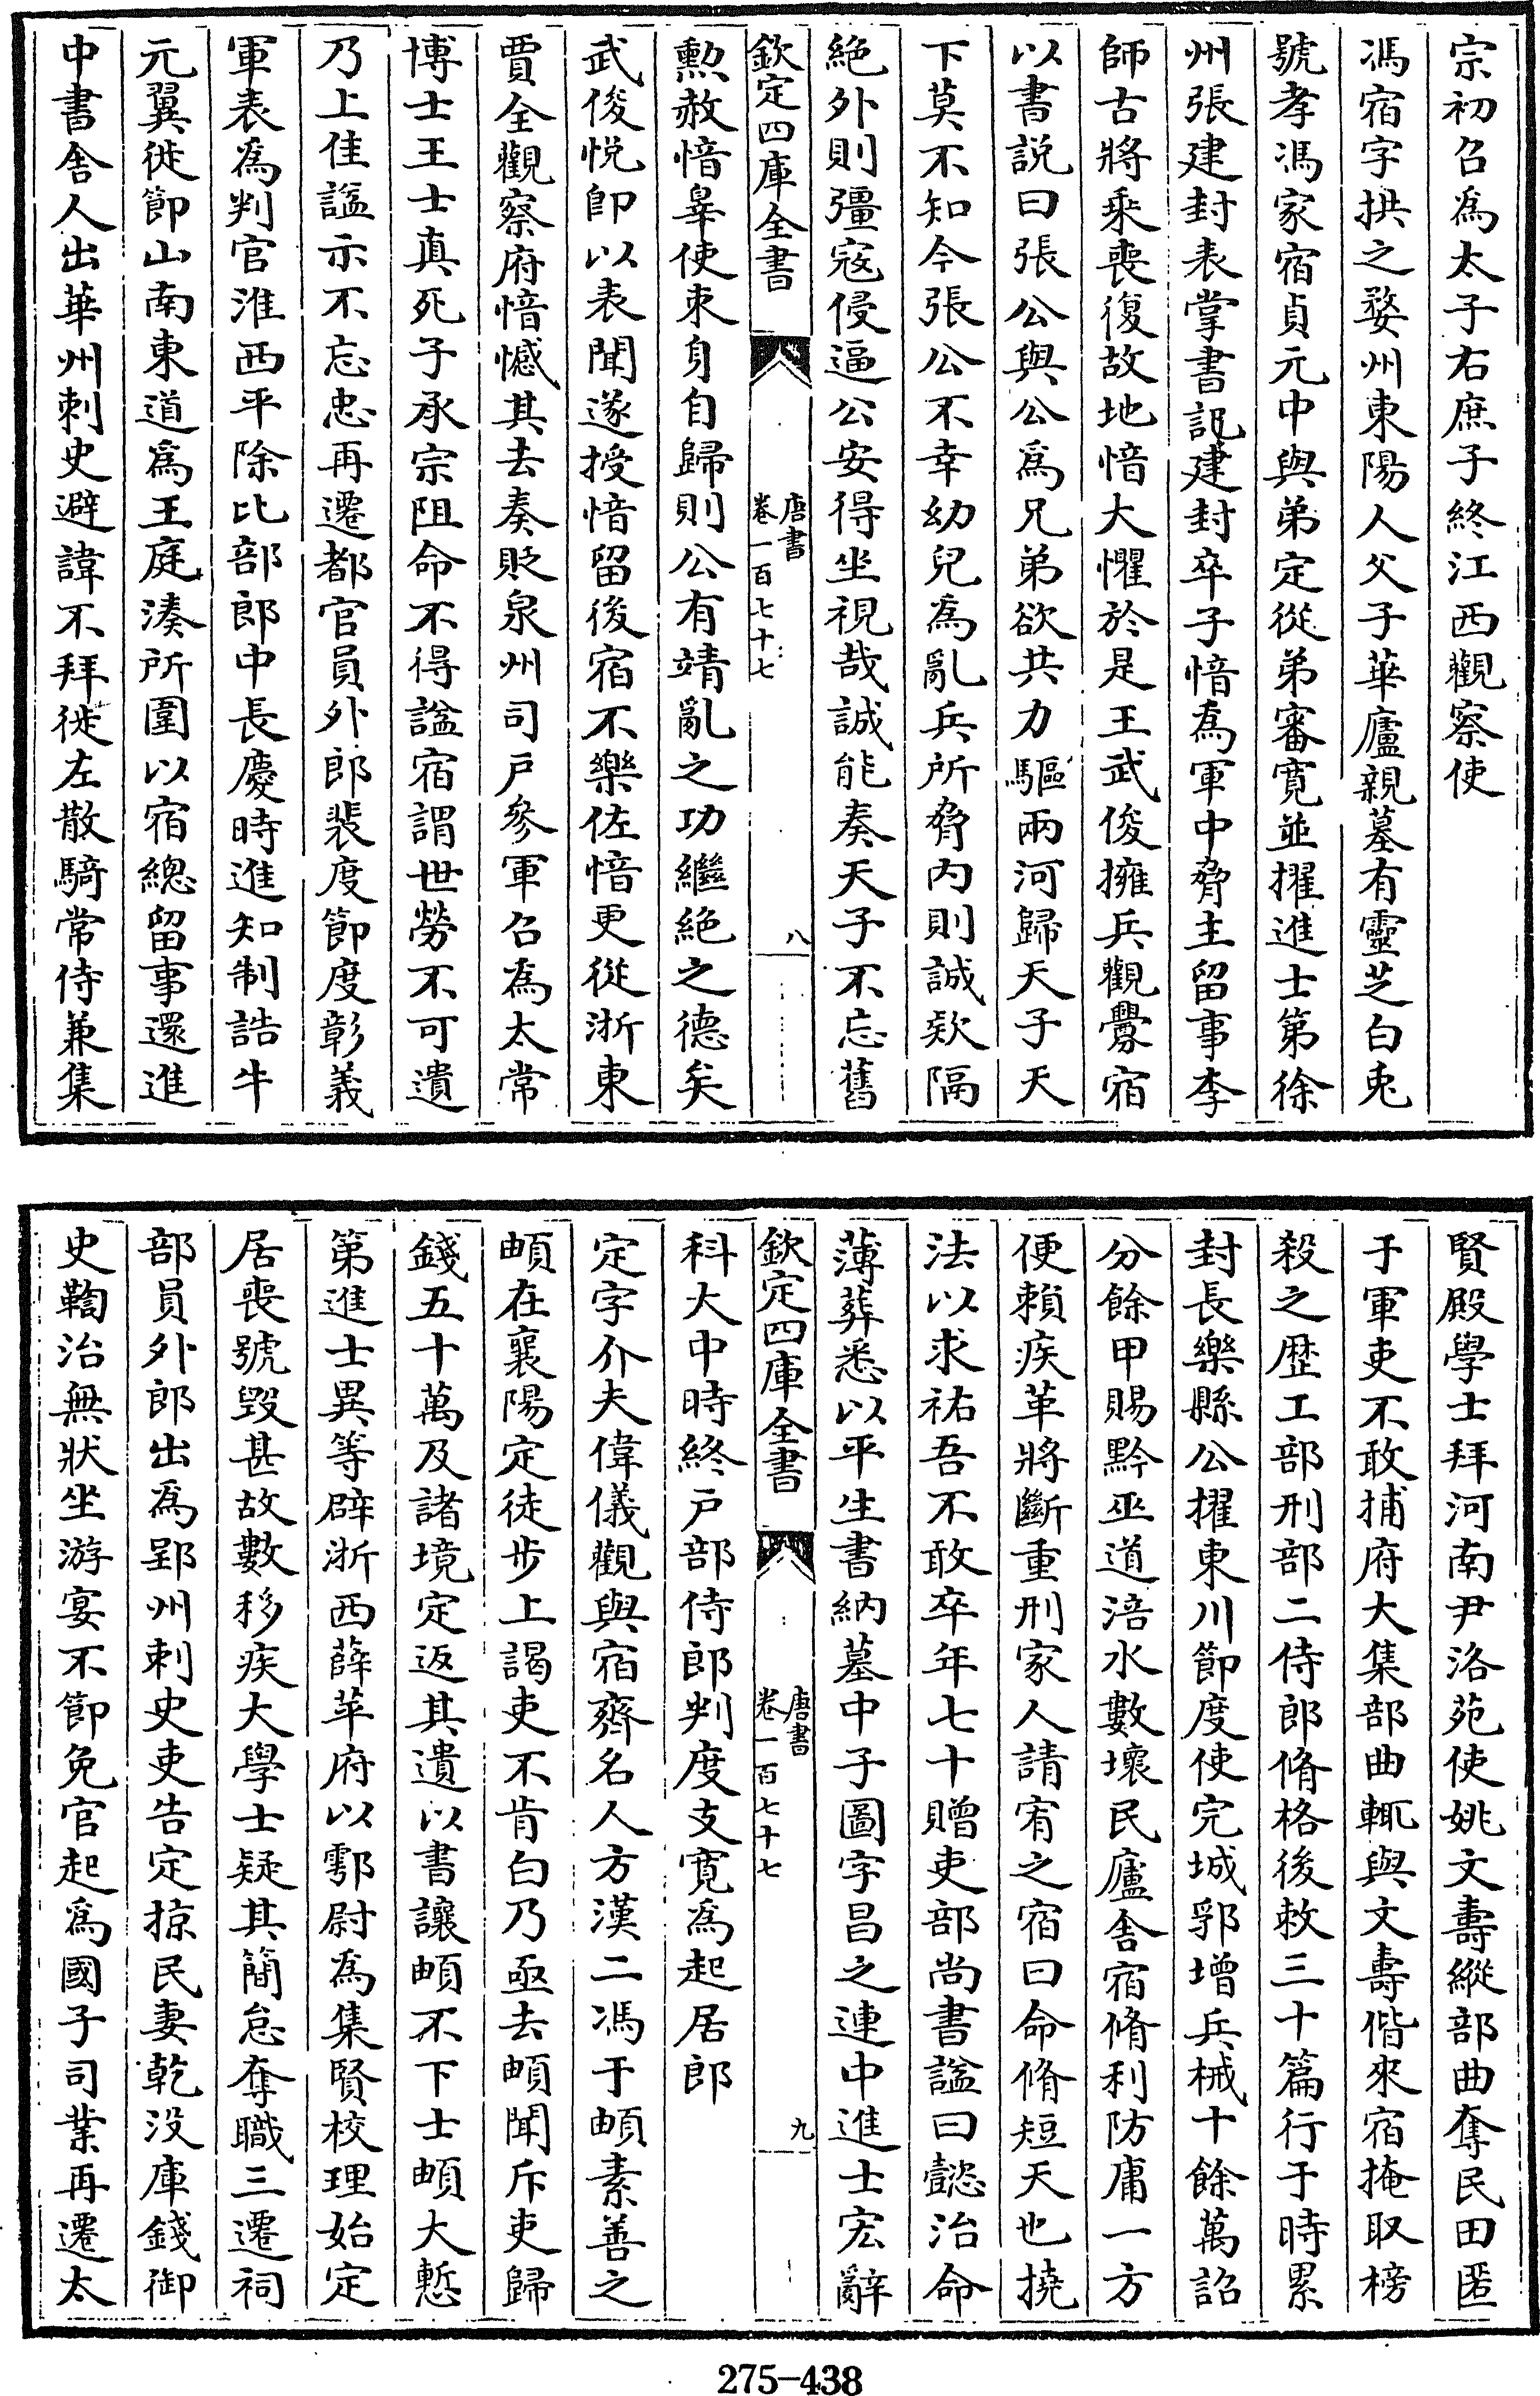 宗初召爲太子右庶子終江西觀察使
馮宿字拱之婺州東陽人父子華廬親墓有靈芝白兎
號孝馮家宿貞元中與弟定從弟審寛並擢進士第徐
州張建封表掌書記建封卒子愔爲軍中脅主留事李
師古將乘喪復故地愔大懼於是王武俊擁兵觀釁宿
以書説曰張公與公爲兄弟欲共力驅兩河歸天子天
下莫不知今張公不幸幼兒爲亂兵所脅内則誠欵隔
絶外則彊寇侵逼公安得坐視哉誠能奏天子不忘舊
欽定四庫全書
唐書
卷一百七十七
八
勲赦愔辠使束身自歸則公有靖亂之功繼絶之德矣
武俊悦即以表聞遂授愔留後宿不樂佐愔更從浙東
賈全觀察府愔憾其去奏貶泉州司戸參軍召爲太常
博士王士真死子承宗阻命不得諡宿謂世勞不可遺
乃上佳諡示不忘忠再遷都官員外郎裴度節度彰義
軍表爲判官淮西平除比部郎中長慶時進知制誥牛
元翼徙節山南東道爲王庭湊所圍以宿總留事還進
中書舎人出華州刺史避諱不拜徙左散騎常侍兼集
賢殿學士拜河南尹洛苑使姚文壽縱部曲奪民田匿
于軍吏不敢捕府大集部曲輒與文壽偕來宿掩取榜
殺之歴工部刑部二侍郎脩格後敕三十篇行于時累
封長樂縣公擢東川節度使完城郛増兵械十餘萬詔
分餘甲賜黔巫道涪水數壞民廬舎宿脩利防庸一方
便頼疾革將斷重刑家人請宥之宿曰命脩短天也撓
法以求祐吾不敢卒年七十贈吏部尚書諡曰懿治命
薄葬悉以平生書納墓中子圖字昌之連中進士宏辭
欽定四庫全書
唐書
卷一百七十七
九
科大中時終戸部侍郎判度支寛爲起居郎
定字介夫偉儀觀與宿齊名人方漢二馮于頔素善之
頔在襄陽定徒歩上謁吏不肯白乃亟去頔聞斥吏歸
錢五十萬及諸境定返其遺以書讓頔不下士頔大慙
第進士異等辟浙西薛苹府以鄠尉爲集賢校理始定
居喪號毀甚故數移疾大學士疑其簡怠奪職三遷祠
部員外郎出爲郢州刺史吏告定掠民妻乾没庫錢御
史鞫治無狀坐游宴不節免官起爲國子司業再遷太
275-438